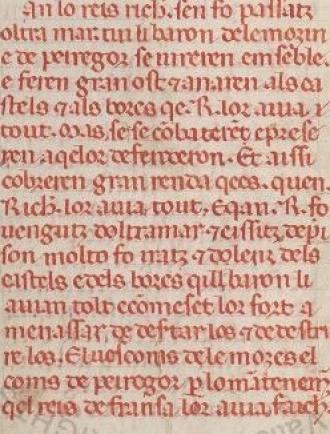 an lo reis rich. sen fo passatz
oltra mar. tuit li baron de lemozin
e de peiregor se iureren ensẽble.
e feren gran ost ⁊ anaren als ca
stels ⁊ als borcs qe. R. lor auia
tout. Mas se cõbateret e prese
ren aqels defenderon. Et aissi
cobreren gran renda qees. quen
Rich. lor auia tout. Eqan. R. fo
uengutz doltramar. ⁊ eissitz depi
son molto fo iratz ⁊ dolenz dels
castels edels borcs quill baron li
auian tolt ecõmeset lor fort a
menassar. de deseritar los ⁊ de destru
re los. El uescoms de lemoges el
coms de peiregor p̱lo mãtenemen
qel reis de fransa lor auia faich